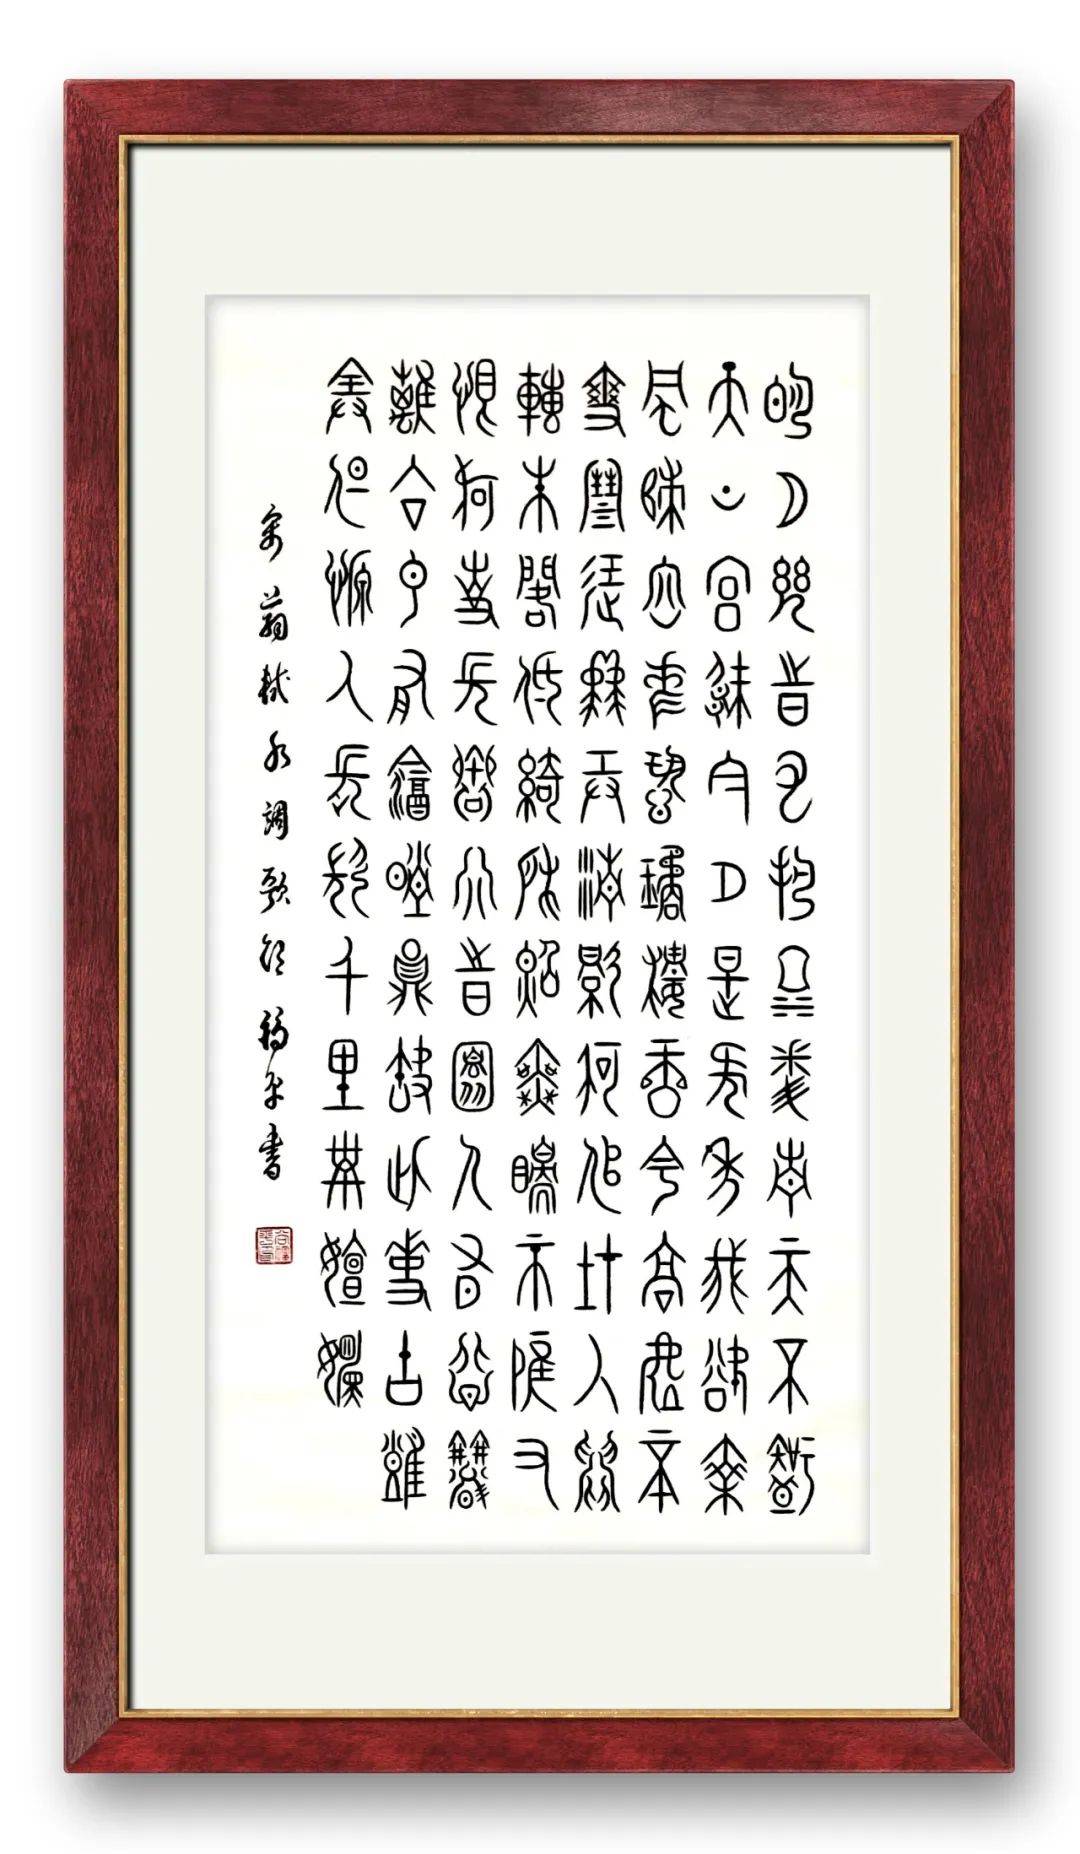 明月幾時有把酒問青天不知
天上宮闕今夕是何年我欲乘
風歸去又恐瓊樓玉宇高處不
勝寒起舞弄清影何似在人間
轉朱閣低綺戶照無眠不應有
恨何事長向別時圓人有悲歡
離合月有陰晴圓缺此事古難
全但願人長久千里共嬋娟
宋蘇軾水調歌頭平書